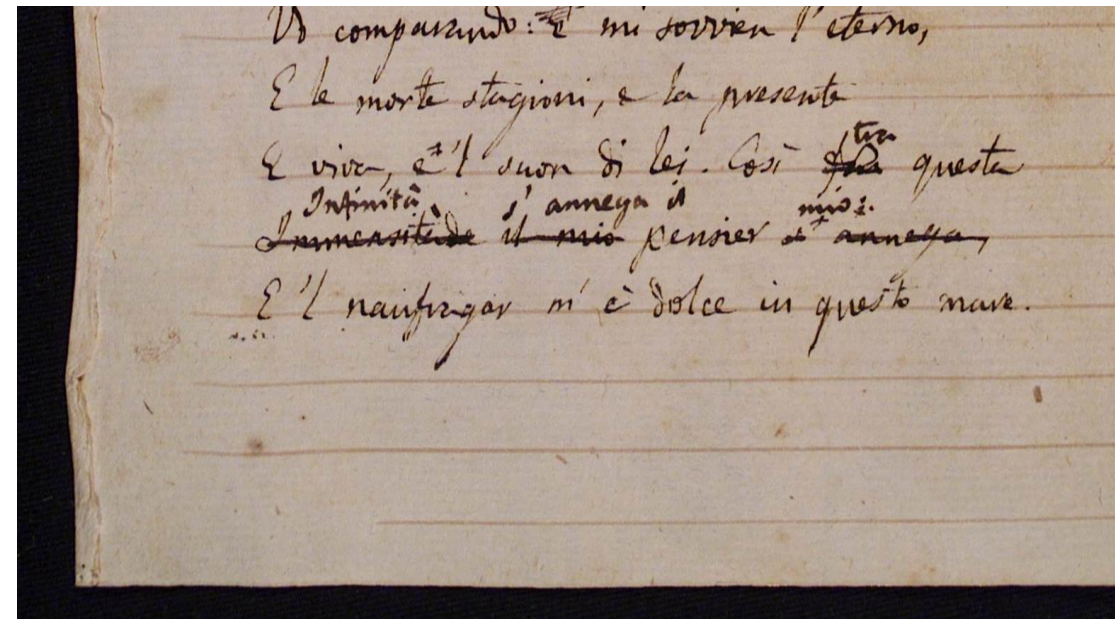 Vo comparando: e mi sovvien l' eterno,
E le morte stagioni, e la presente
tra
E viva, e 'l suon di lei. Così questa
Infinità s' annega il mio:
Immensitade il mio pensier s' annega,
E 'l naufragar m' è dolce in questo mare.